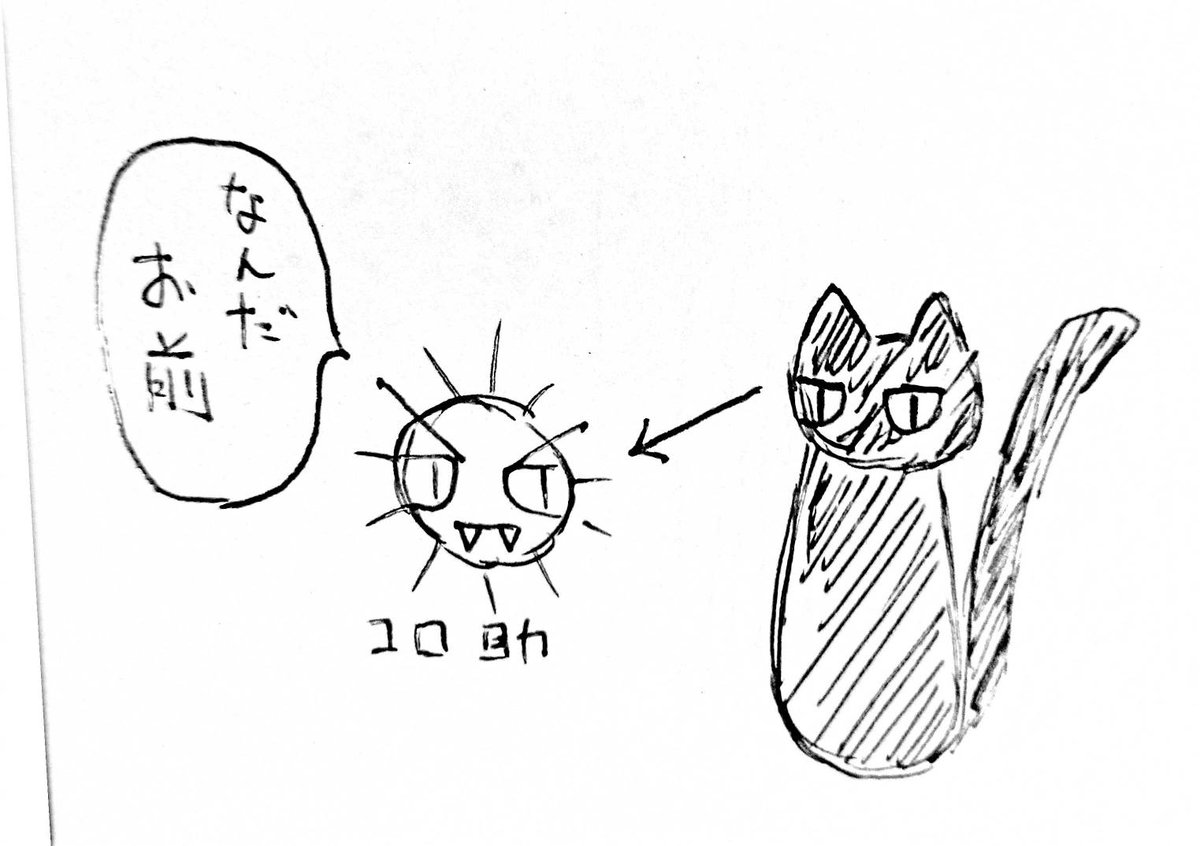 なんだ
お前
コロ助